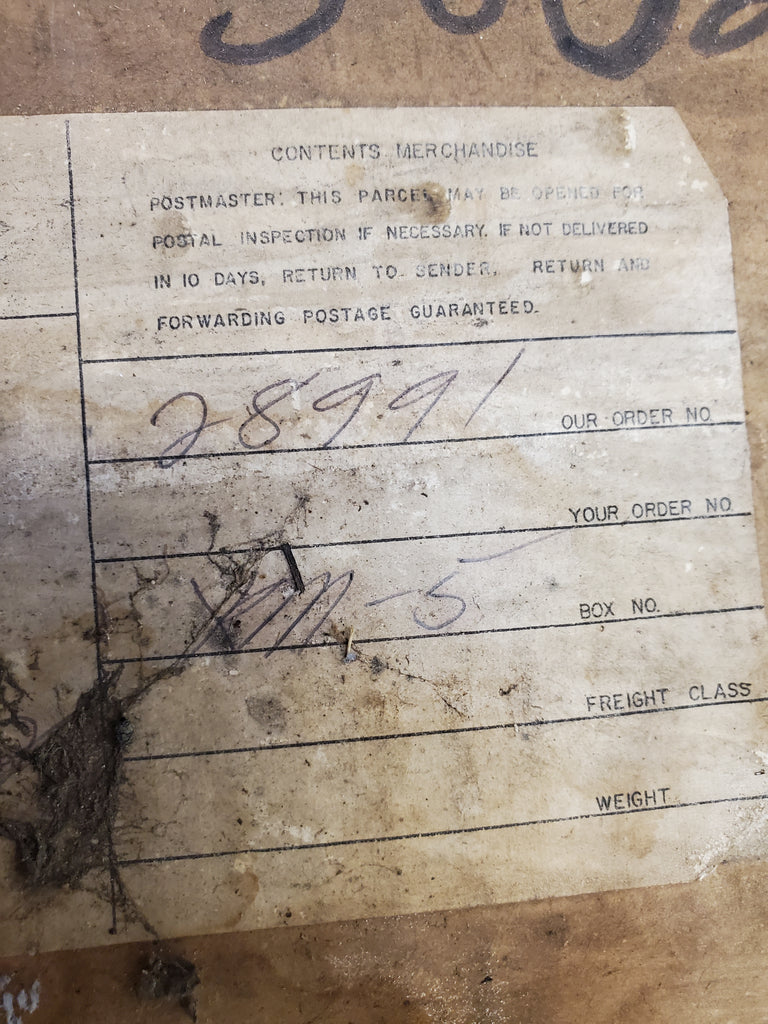 CONTENTS MERCHANDISE
POSTMASTER: THIS PARCEL MAY BE OPENED FOR
POSTAL INSPECTION IF NECESSARY. IF NOT DELIVERED
IN 10 DAYS, RETURN TO SENDER. RETURN AND
FORWARDING POSTAGE GUARANTEED.
28991 OUR ORDER NO.
YOUR ORDER NO
-5 BOX NO.
FREIGHT CLASS
WEIGHT